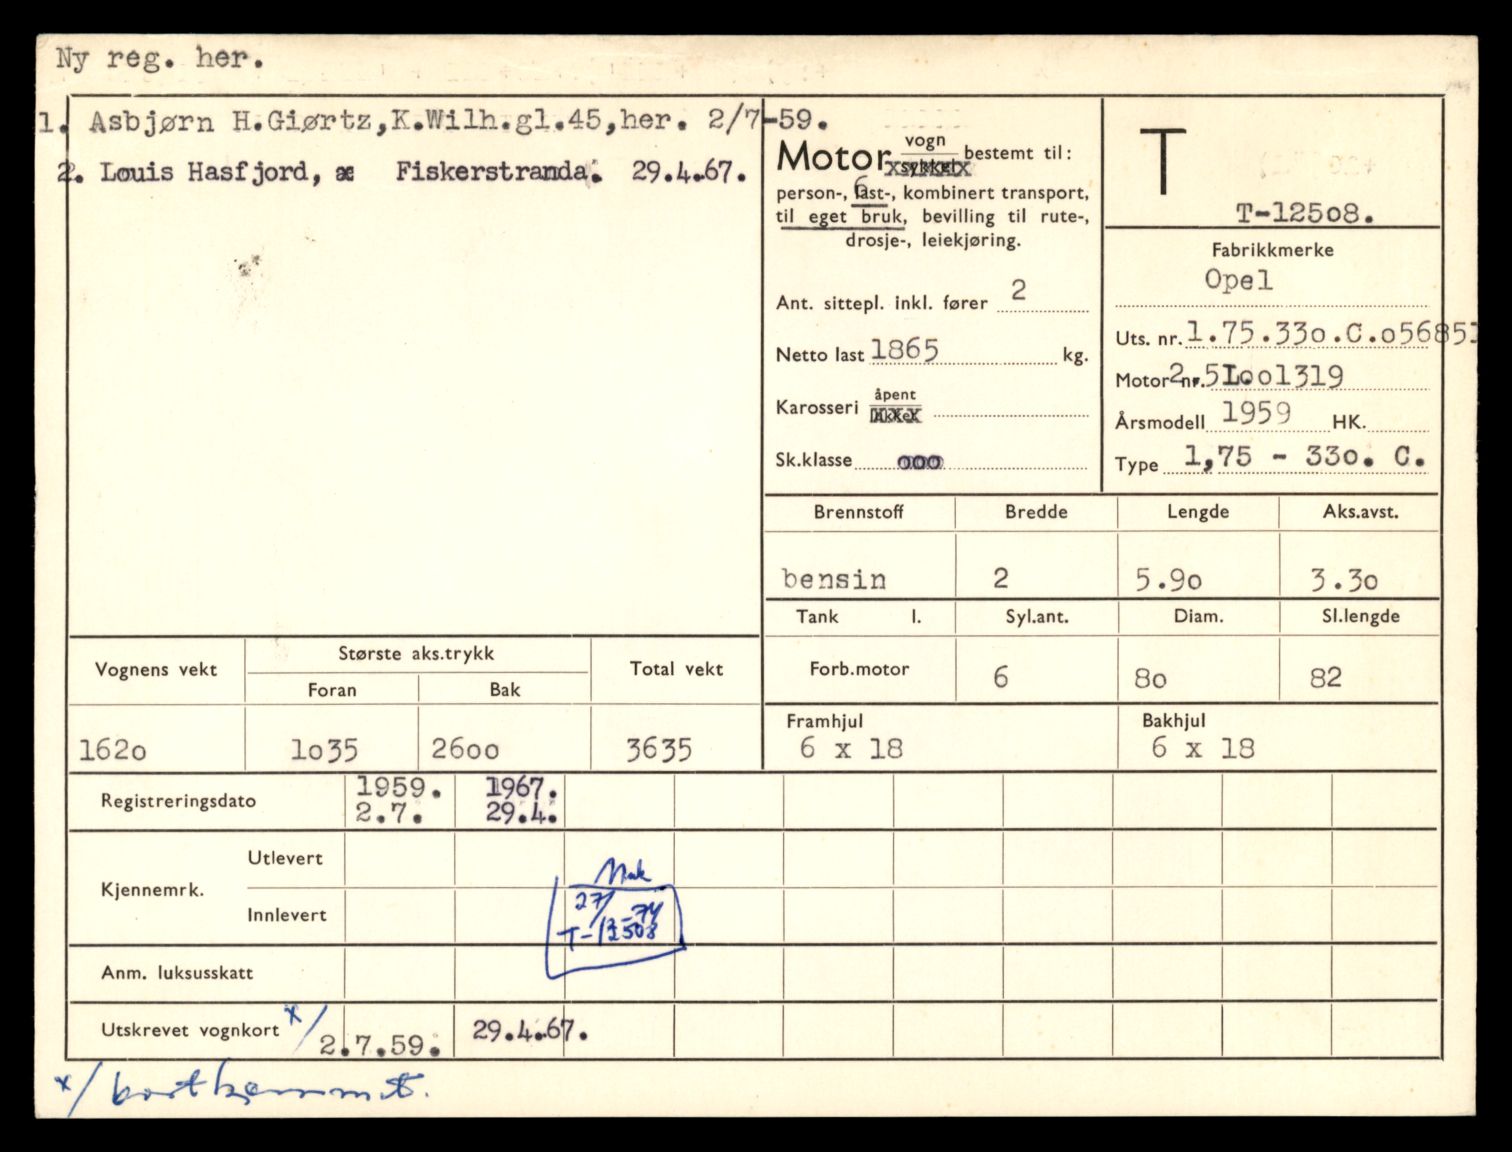 Ny reg. her.
1. Asbjørn H.Giørtz,K.Wilh.gl.45,her. 2/7-59.
2. Louis Hasfjord, æ Fiskerstranda. 29.4.67.
Motor vogn
sykkel bestemt til:
person-, last-, kombinert transport,
6
til eget bruk, bevilling til rute-,
drosje-, leiekjøring.
Ant. sittepl. inkl. fører 2
Netto last 1865 kg.
Karosseri åpent
lukket
Sk.klasse ooo
T
T-125o8.
Fabrikkmerke
Opel
Uts. nr. 1.75.33o.C.o56851
Motor nr. 2.5L.oo1319
Årsmodell 1959 HK.
Type 1,75 - 33o. C.
Brennstoff Bredde Lengde Aks.avst.
bensin 2 5.9o 3.3o
Tank l. Syl.ant. Diam. Sl.lengde
Forb.motor 6 8o 82
Framhjul Bakhjul
6 x 18 6 x 18
Vognens vekt Største aks.trykk Total vekt
Foran Bak
162o 1o35 26oo 3635
Registreringsdato 1959. 1967.
2.7. 29.4.
Kjennemrk. Utlevert
Innlevert
27/2-74
T-12508
Anm. luksusskatt
Utskrevet vognkort x/ 2.7.59. 29.4.67.
x/ bortkommet.